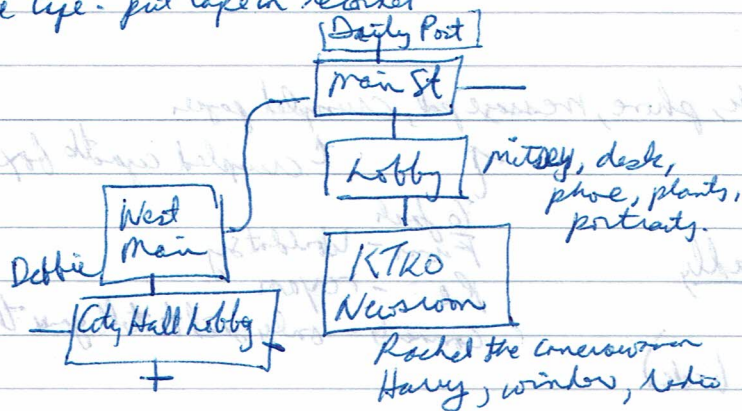 tape - put tape in recorder
Daily Post
Main St
Lobby
Mitsey, desk,
phone, plants,
portraits.
West
Main
Debbie
City Hall Lobby
KTKO
Newsroom
Rachel the camerawoman
Harry, window, radio